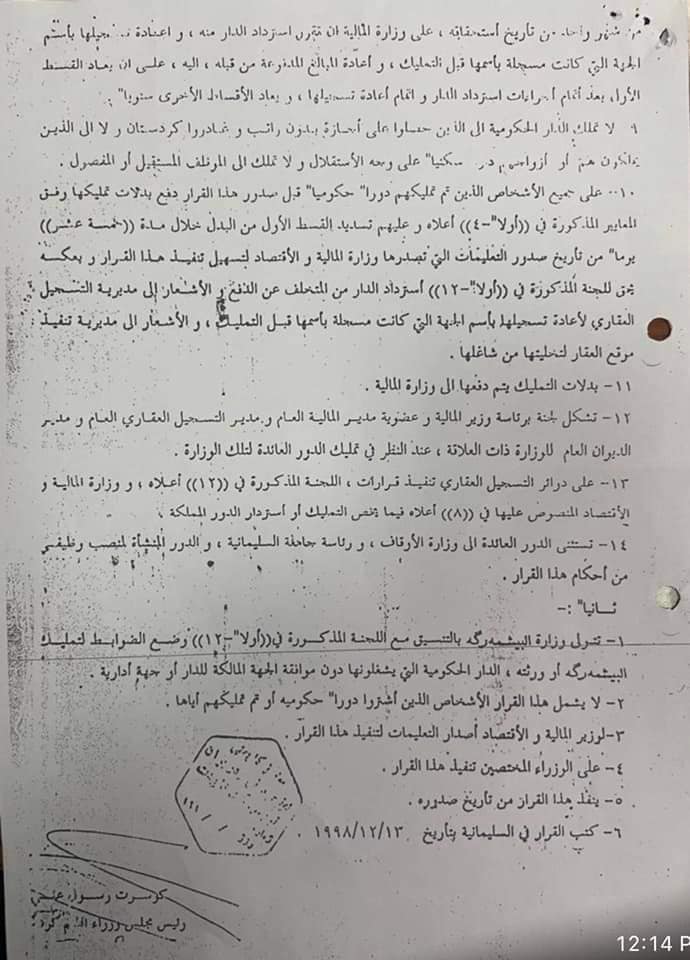 من شهر واحد من تأريخ أستحقاقه ، على وزارة المالية ان تقرر استرداد الدار منه ، و اعادة تسجيلها بأسم
الجهة التي كانت مسجلة بأسمها قبل التمليك ، و أعادة المبالغ المدفوعة من قبله ، اليه ، على ان يعاد القسط
الأول بعد أتمام أجراءات استرداد الدار و اتمام أعادة تسجيلها ، و يعاد الأقساط الأخرى سنويا"
٩ لا تملك الدار الحكومية الى الذين حصلوا على أجازة بدون راتب و غادروا كردستان و لا الى الذين
يملكون هم أو أزواجهم سكنيا" على وجه الأستقلال و لا تملك الى الموظف المستقيل أو المفصول .
١٠- على جميع الأشخاص الذين تم تمليكهم دورا" حكوميا" قبل صدور هذا القرار دفع بدلات تمليكها وفق
المعايير المذكورة في ((أولا"-٤)) أعلاه و عليهم تسديد القسط الأول من البدل خلال مدة ((خمسة عشر))
يوما" من تأريخ صدور التعليمات التي تصدرها وزارة المالية و الأقتصاد لتسهيل تنفيذ هذا القرار و بعكسه
يحق للجنة المذكورة في ((أولا"-١٢)) أسترداد الدار من المتخلف عن الدفع و الأشعار إلى مديرية التسجيل
العقاري لأعادة تسجيلها بأسم الجهة التي كانت مسجلة بأسمها قبل التمليك ، و الأشعار الى مديرية تنفيذ
موقع العقار لتخليتها من شاغلها .
١١- بدلات التمليك يتم دفعها الى وزارة المالية .
١٢- تشكل لجنة برئاسة وزير المالية و عضوية مدير المالية العام و مدير التسجيل العقاري العام و مدير
الديوان العام للوزارة ذات العلاقة ، عند النظر في تمليك الدور العائدة لتلك الوزارة .
١٣- على دوائر التسجيل العقاري تنفيذ قرارات ، اللجنة المذكورة في ((١٢)) أعلاه ، و وزارة المالية و
الأقتصاد المنصوص عليها في ((٨)) أعلاه فيما يخص التمليك أو أستردار الدور المملكة .
١٤- تستثنى الدور العائدة الى وزارة الأرقاف ، و رئاسة جامعة السليمانية ، و الدور المنشأة لمنصب وظيفي
من أحكام هذا القرار .
ثانيا" :-
١- تتولى وزارة البيشمەرگه بالتنسيق مع اللجنة المذكورة في((أولا"-١٢)) وضع الضوابط لتمليك
البيشمەرگه أو ورثته ، الدار الحكومية التي يشغلونها دون موافقة الجهة المالكة للدار أو جهة أدارية .
٢- لا يشمل هذا القرار الأشخاص الذين أشتروا دورا" حكوميه أو تم تمليكهم أياها .
٣-لوزير المالية و الأقتصاد أصدار التعليمات لتنفيذ هذا القرار .
٤- على الوزراء المختصين تنفيذ هذا القرار .
٥- ينفذ هذا القرار من تأريخ صدوره .
٦- كتب القرار في السليمانية بتأريخ ١٩٩٨/١٢/١٣ .
كوسرت رسول
رئيس مجلس وزراء
12:14 P